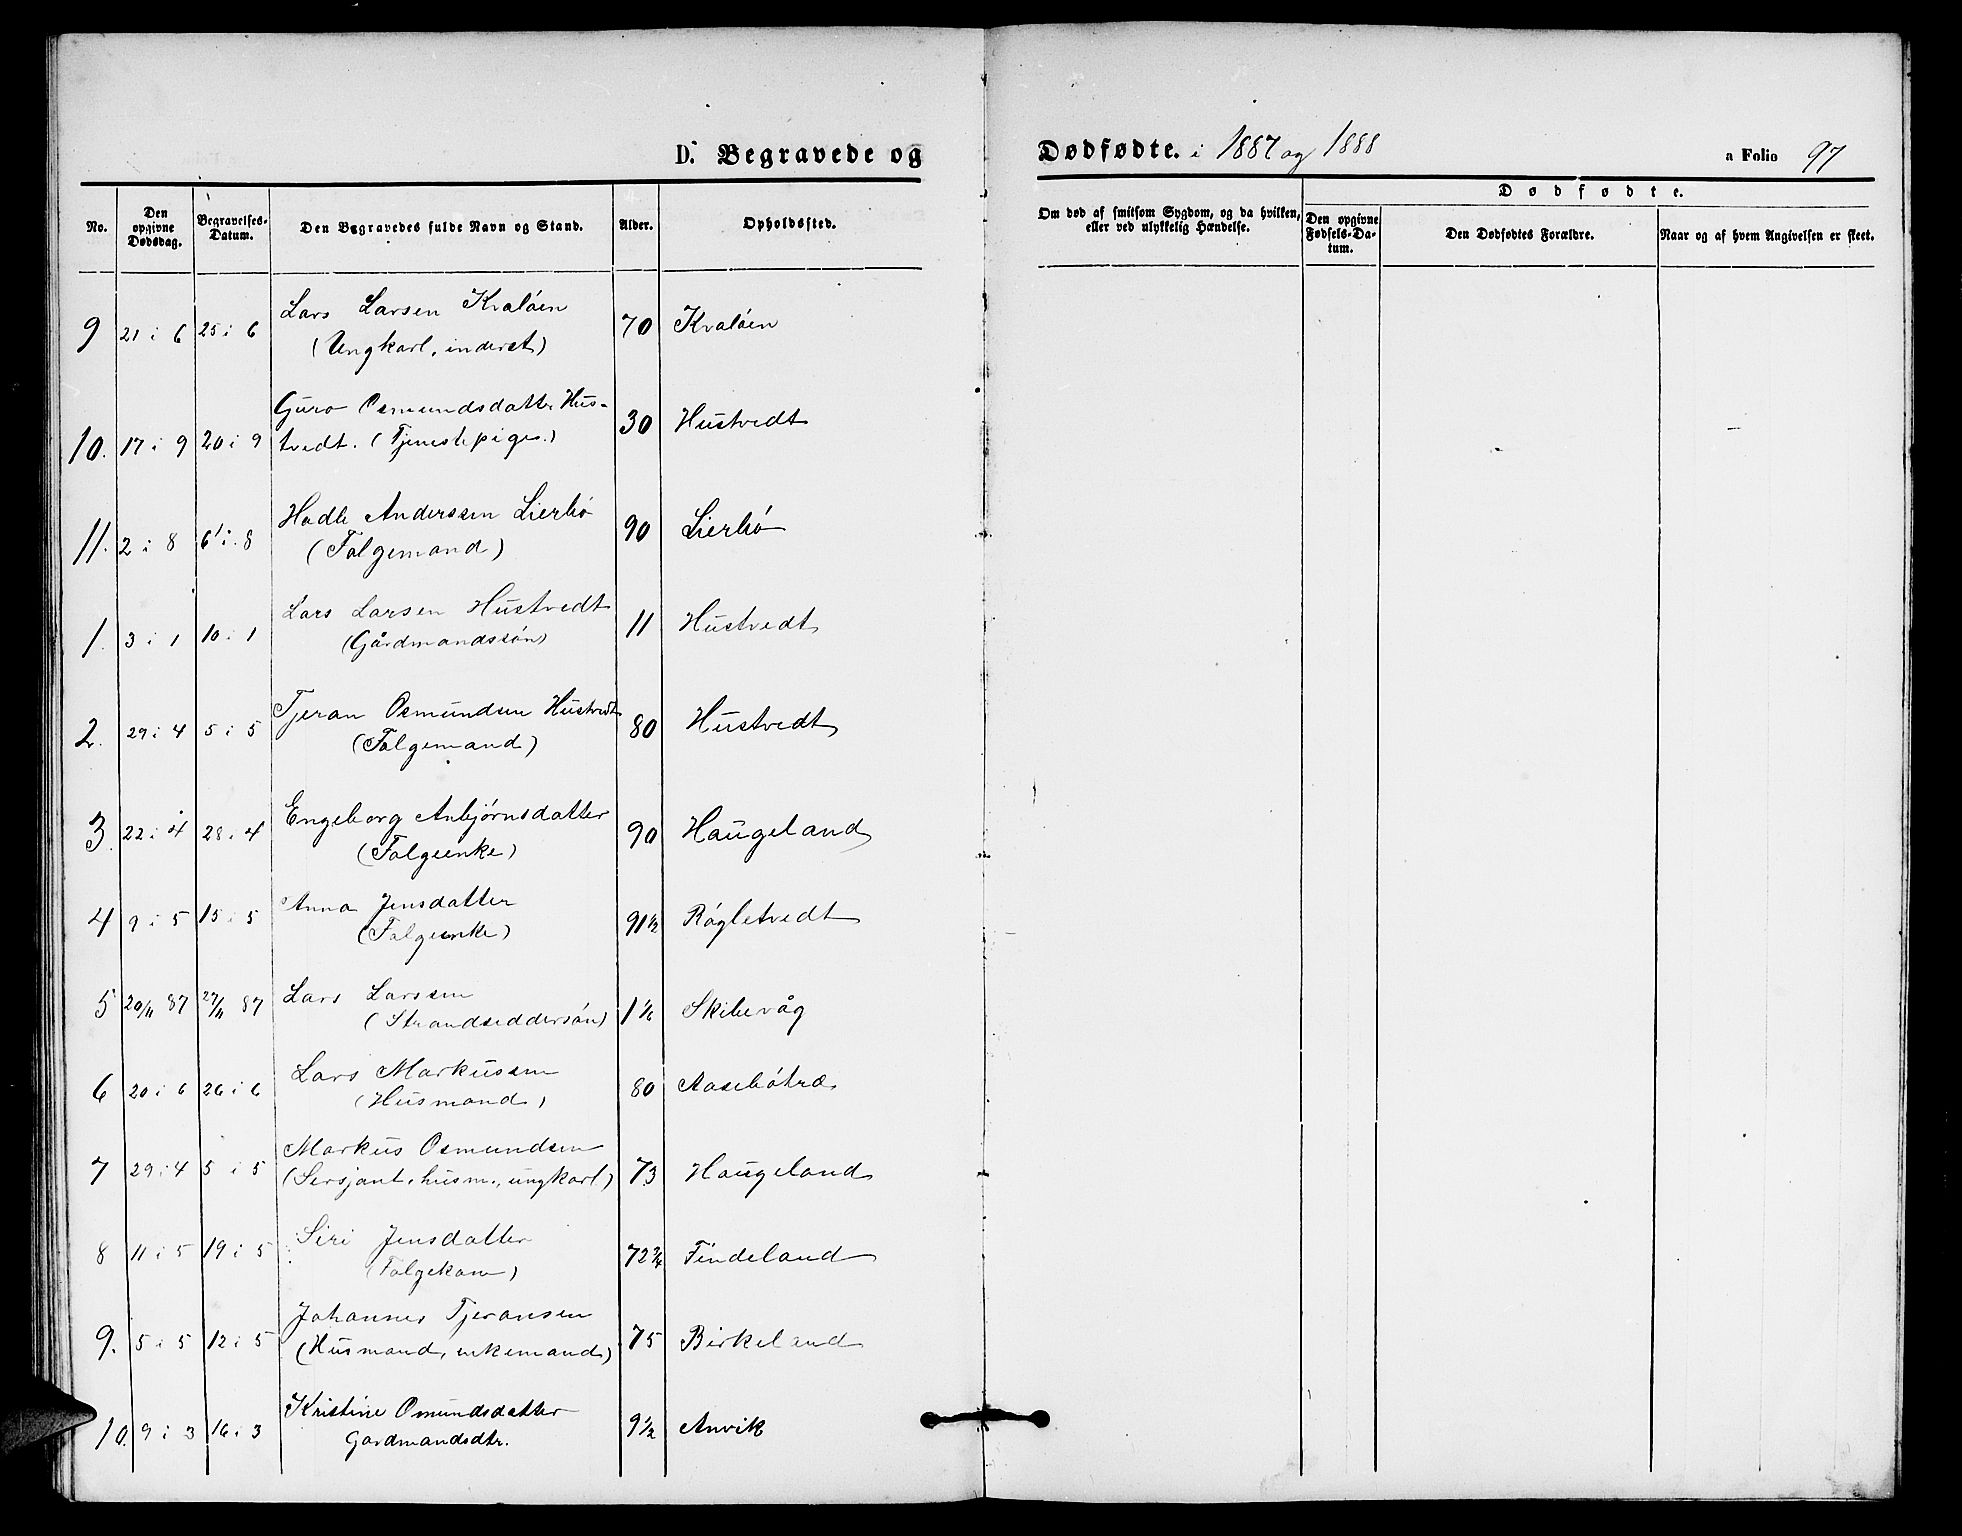 D. Begravede og
Dødfødte. i 1887 og 1888
a Folio 97
No.
Den opgivne Dødsdag.
Begravelses-Datum.
Den Begravedes fulde Navn og Stand.
Alder.
Opholdssted.
Om død af smitsom Sygdom, og da hvilken, eller ved ulykkelig Hændelse.
Dødfødte.
Den opgivne Fødsels-Datum.
Den Dødfødtes Forældre.
Naar og af hvem Angivelsen er skeet.
Lars Larsen Kvaløen
9 21 i 6 25 i 6 70 Kvaløen
(Ungkarl, inderst)
Guro Osmundsdatter Hus-
10. 17 i 9 20 i 9 tvedt. (Tjenestepige.) 30 Hustvedt
Hadle Anderssen Lierbø
11. 2 i 8 6 i 8 90 Lierbø
(Folgemand)
Lars Larsen Hustvedt
1. 3 i 1 10 i 1 11 Hustvedt
(Gårdmandssøn)
Tjeran Osmundsen Hustvedt
2. 29 i 4 5 i 5 80 Hustvedt
(Folgemand)
Engeborg Anbjørnsdatter
3. 22 i 4 28 i 4 90 Haugeland
(Folgeenke)
Anna Jensdatter
4 9 i 5 15 i 5 91 1/2 Røgletvedt
(Folgeenke)
Lars Larssen
5 20/11 87 27/11 87 1 1/6 Skibevåg
(Strandsiddersøn)
Lars Markussen
6 20 i 6 26 i 6 80 Aasebøtræ
(Husmand)
Markus Osmundsen
7 29 i 4 5 i 5 (Sersjant, husm., ungkarl) 73 Haugeland
Siri Jensdatter
8 11 i 5 19 i 5 72 3/4 Findeland
(Folgekone)
Johannes Tjeransen
9. 5 i 5 12 i 5 (Husmand, enkemand) 75 Birkeland
Kristine Omundsdatter
10. 9 i 3 16 i 3 9 1/2 Anvik
Gardmandsdtr.